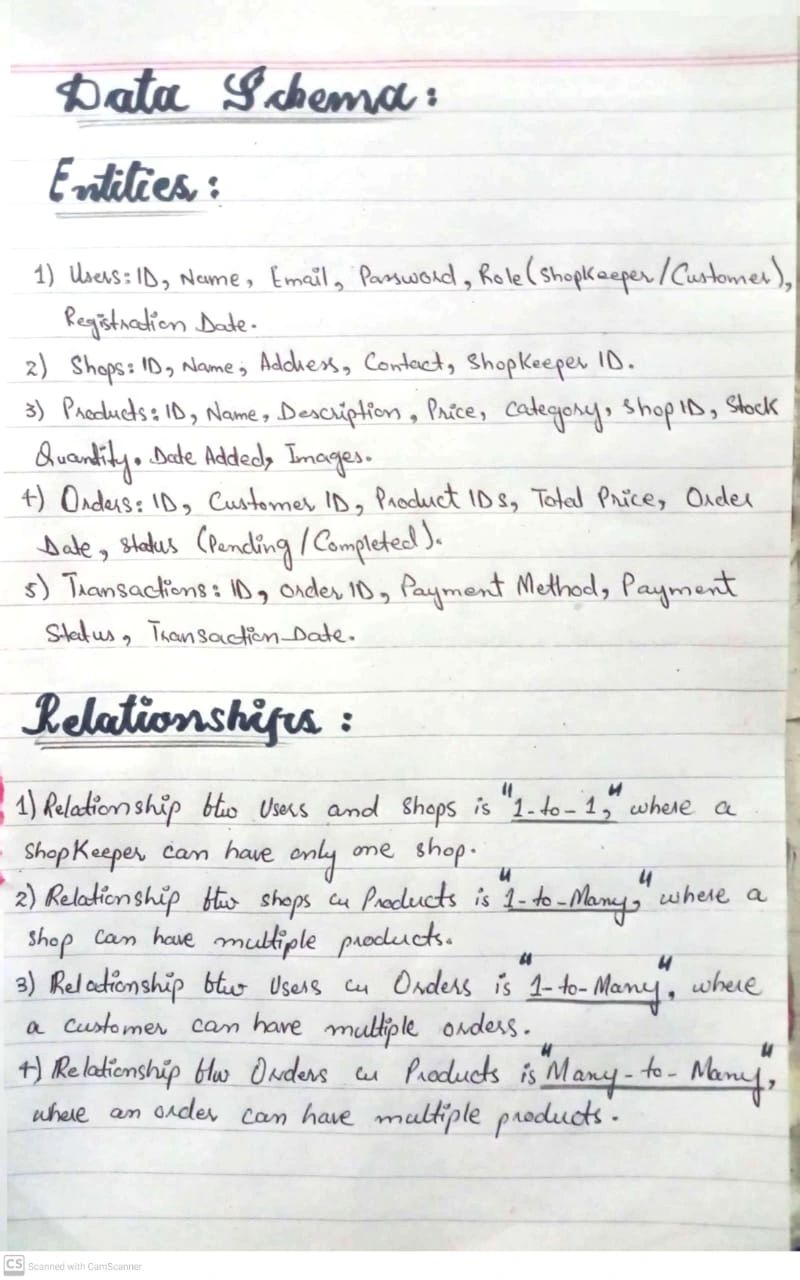 Data Schema:
Entities:
1) Users: ID, Name, Email, Password, Role (Shopkeeper/Customer),
Registration Date.
2) Shops: ID, Name, Address, Contact, Shopkeeper ID.
3) Products: ID, Name, Description, Price, Category, Shop ID, Stock
Quantity, Date Added, Images.
4) Orders: ID, Customer ID, Product IDs, Total Price, Order
Date, Status (Pending/Completed).
5) Transactions: ID, Order ID, Payment Method, Payment
Status, Transaction Date.
Relationships:
1) Relationship btw Users and Shops is "1-to-1," where a
ShopKeeper can have only one shop.
2) Relationship btw shops Products is "1-to-Many," where a
shop can have multiple products.
3) Relationship btw Users Orders is "1-to-Many", where
a customer can have multiple orders.
4) Relationship btw Orders Products is "Many-to-Many",
where an order can have multiple products.
CS Scanned with CamScanner